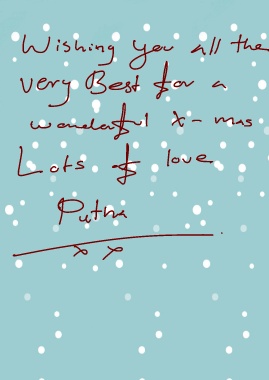 Wishing you all the
very Best for a
wonderful X-mas
Lots of love
x x